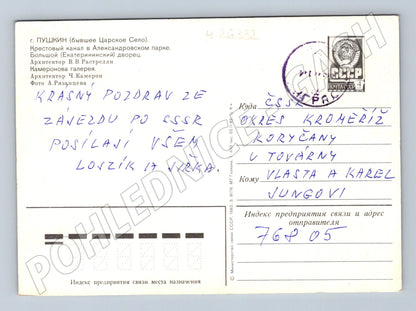 г. ПУШКИН (бывшее Царское Село).
Крестовый канал в Александровском парке.
Большой (Екатерининский) дворец.
Архитектор В. В. Растрелли
Камеронова галерея.
Архитектор Ч. Камерон
Фото А. Рязанцева
KRÁSNÝ POZDRAV ZE
ZÁJEZDU PO SSSR
POSÍLAJÍ VŠEM
JIRKA.
СССР
Куда ČSSR
OKRES KROMĚŘÍŽ
KORYČANY
U TOVÁRNY
Кому VLASTA A KAREL
JUNGOVI
Индекс предприятия связи и адрес
отправителя
768 05
Индекс предприятия связи места назначения
© Министерство связи СССР. 1983
POHLEDNICE-CASH